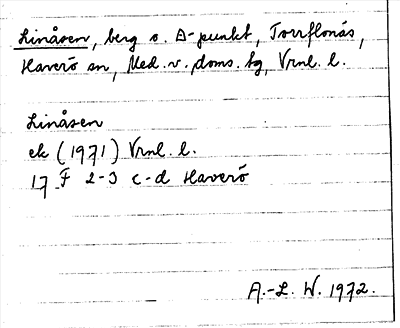 Linåsen, berg o. Δ-punkt, Torrflonäs,
Haverö sn, Med. v. doms. tg, Vrnl. l.
Linåsen
ek (1971) Vrnl. l.
17 F 2-3 c-d Haverö
A.-L. W. 1972.